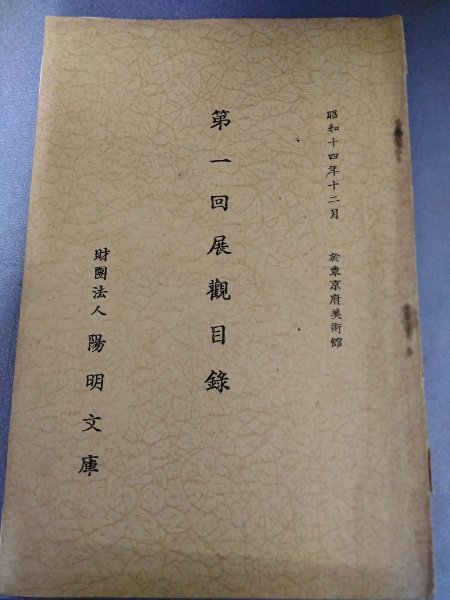 昭和十四年十二月 於東京府美術館
第一回展觀目錄
財團法人 陽明文庫